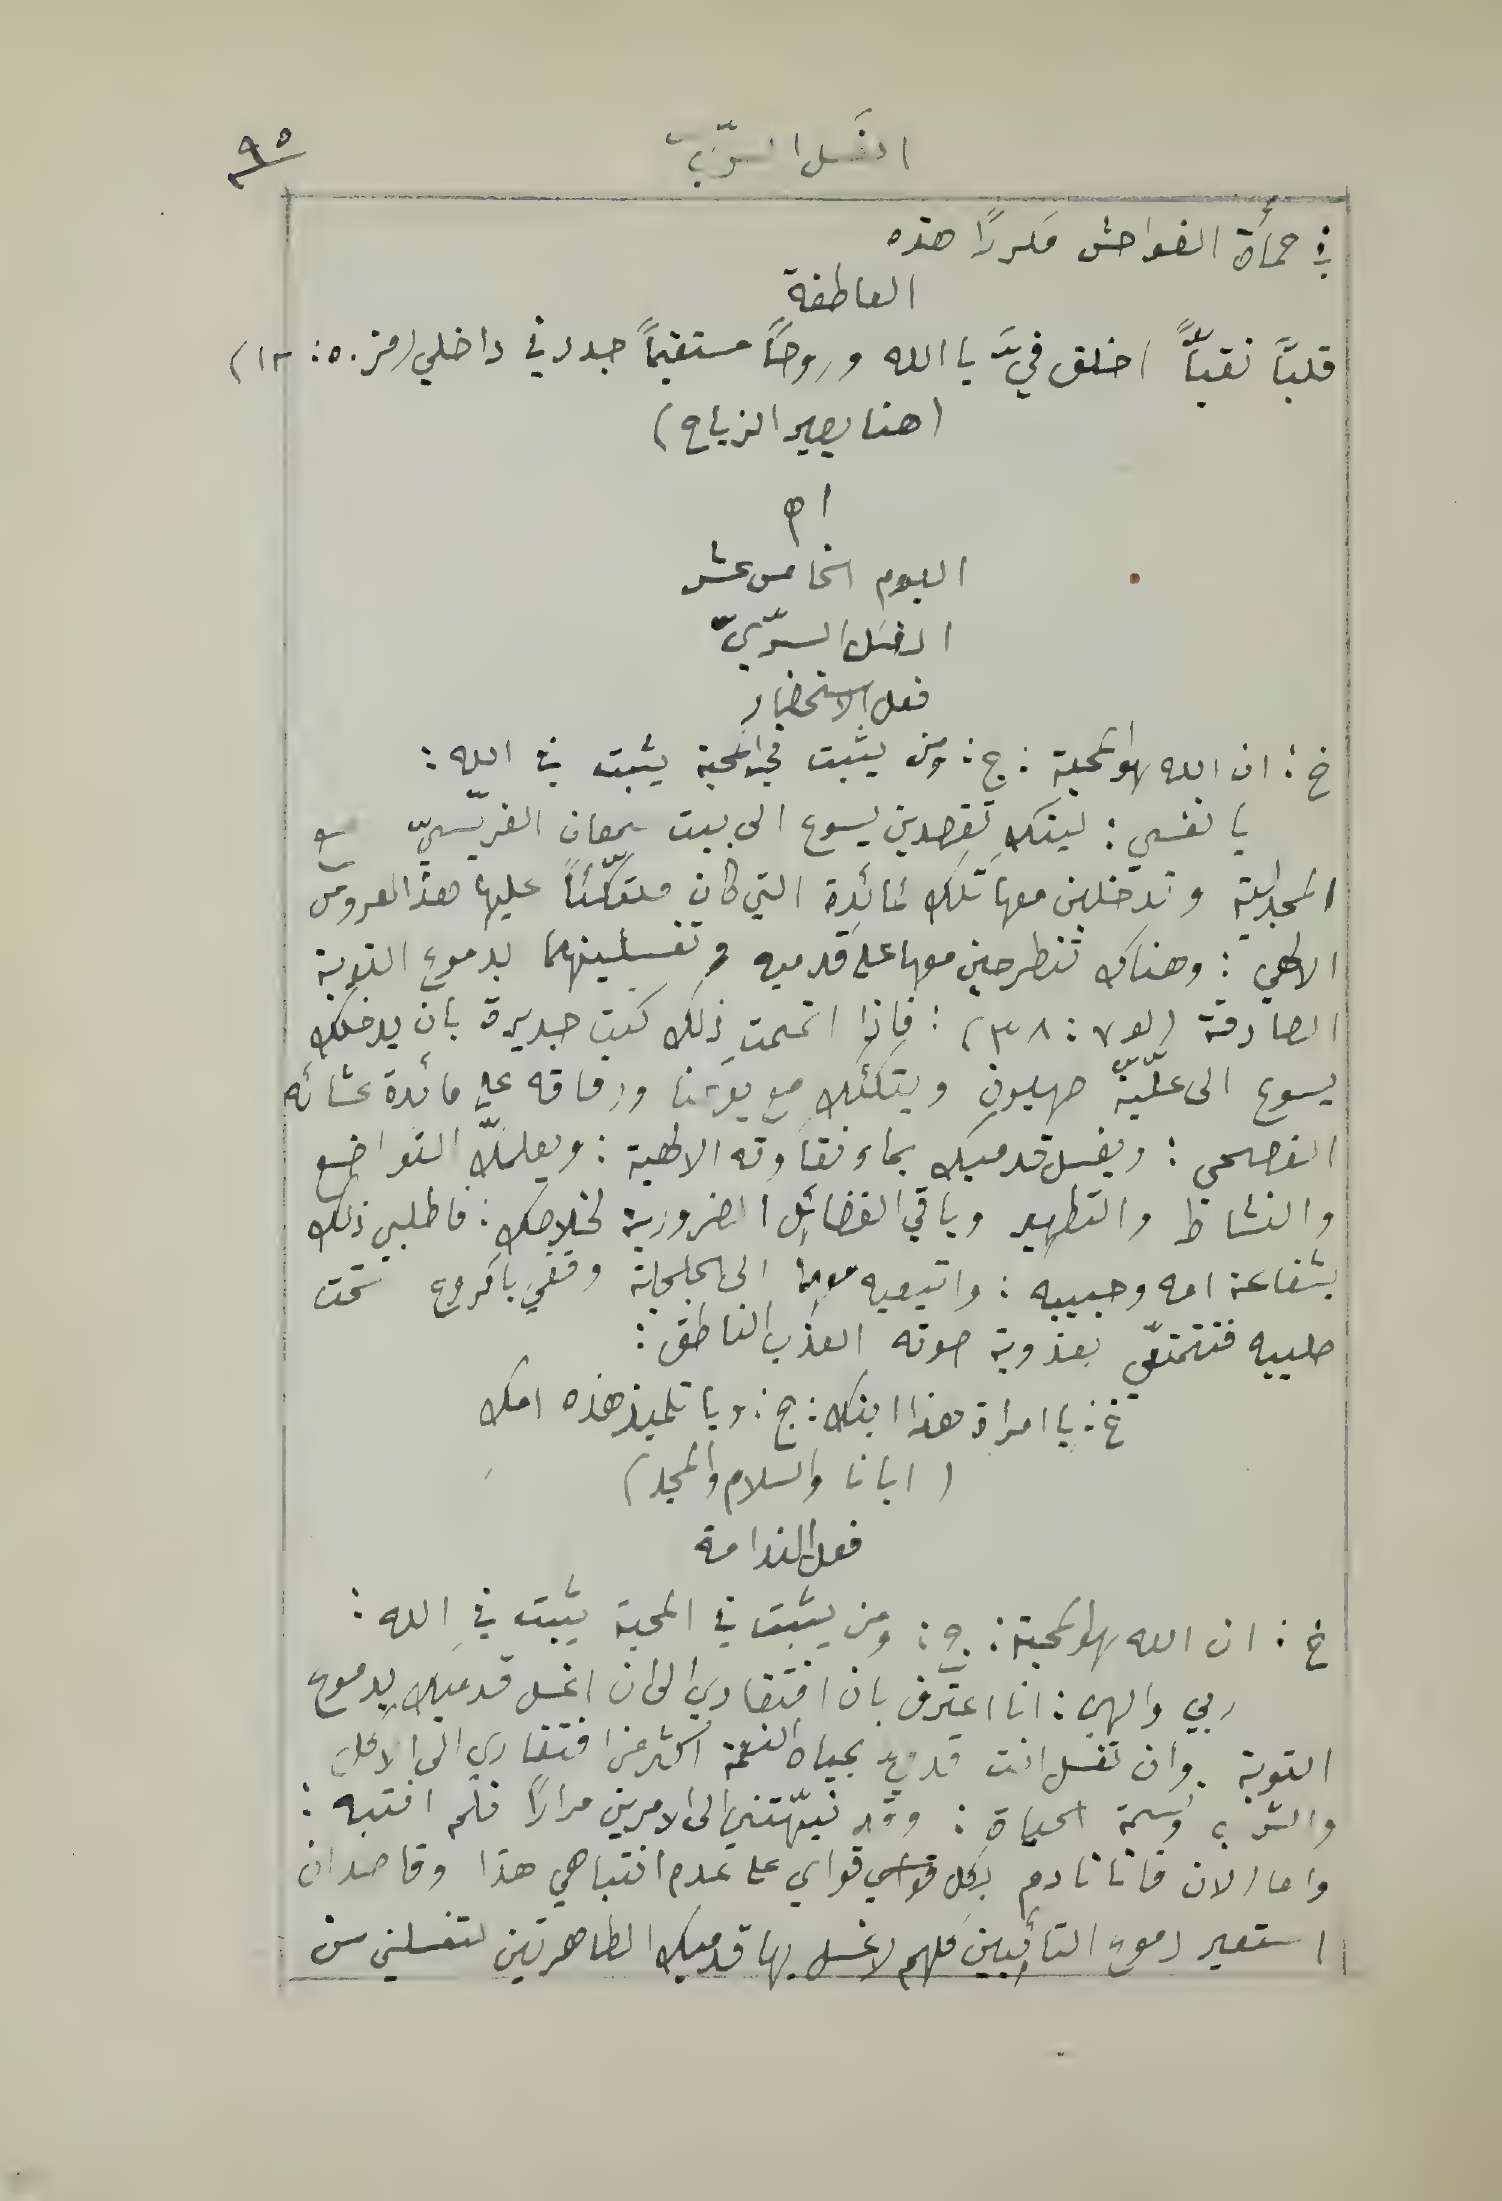 الغَسل السّرّيّ
٩٥
في حمأة الفواحش مكررًا هذه
العاطفة
قلبًا نقيًّا اخلق فيَّ يا الله وروحًا مستقيمًا جدد في داخلي (مز ٥٠ : ١٢)
(هنا يصير الزياح)
١٥
اليوم الخامس عشر
الغسل السّرّيّ
فعل الاستحضار
خ : ان الله هو المحبة : ج : ومن يثبت في المحبة يثبت في الله :
يا نفسي : ليتكِ تقصدين يسوع الى بيت سمعان الفرّيسيّ مع
المجدلية وتدخلين معها تلك المائدة التي كان متّكئًا عليها هذا العروس
الالهي : وهناك تنطرحين معها على قدميه وتغسلينهما بدموع التوبة
الصادقة (لو ٧ : ٣٨) : فاذا اتممتِ ذلك كنتِ جديرة بان يدخلك
يسوع الى علّيّة صهيون ويتكئك مع يوحنا ورفاقه على مائدة عشائه
الفصحي : ويغسل قدميك بماء نقاوته الالهية : ويعلمكِ التواضع
والنشاط والتطهير وباقي الفضائل الضرورية لخلاصك : فاطلبي ذلك
بشفاعة امه وحبيبه : واتبعيه معهما الى الجلجلة وقفي باكروع تحت
صليبه فتتمتعي بعذوبة صوته العذب الناطق :
خ : يا امراة هذا ابنك : ج : ويا تلميذ هذه امك
(ابانا والسلام والمجد)
فعل الندامة
خ : ان الله هو المحبة : ج : ومن يثبت في المحبة يثبت في الله :
ربي والهي : انا اعترف بان افتقاري الى ان اغسل قدميك بدموع
التوبة وان تغسل انت قدميّ بمياه النعمة اكثر من افتقاري الى الاكل
والشرب ونسمة الحياة : وقد نبّهتني الى الامرين مرارًا فلم انتبه :
واما الان فانا نادم بكل قواي على عدم انتباهي هذا وقاصد ان
استعير دموع التائبين كلهم لاغسل بها قدميك الطاهرتين لتغسلني من